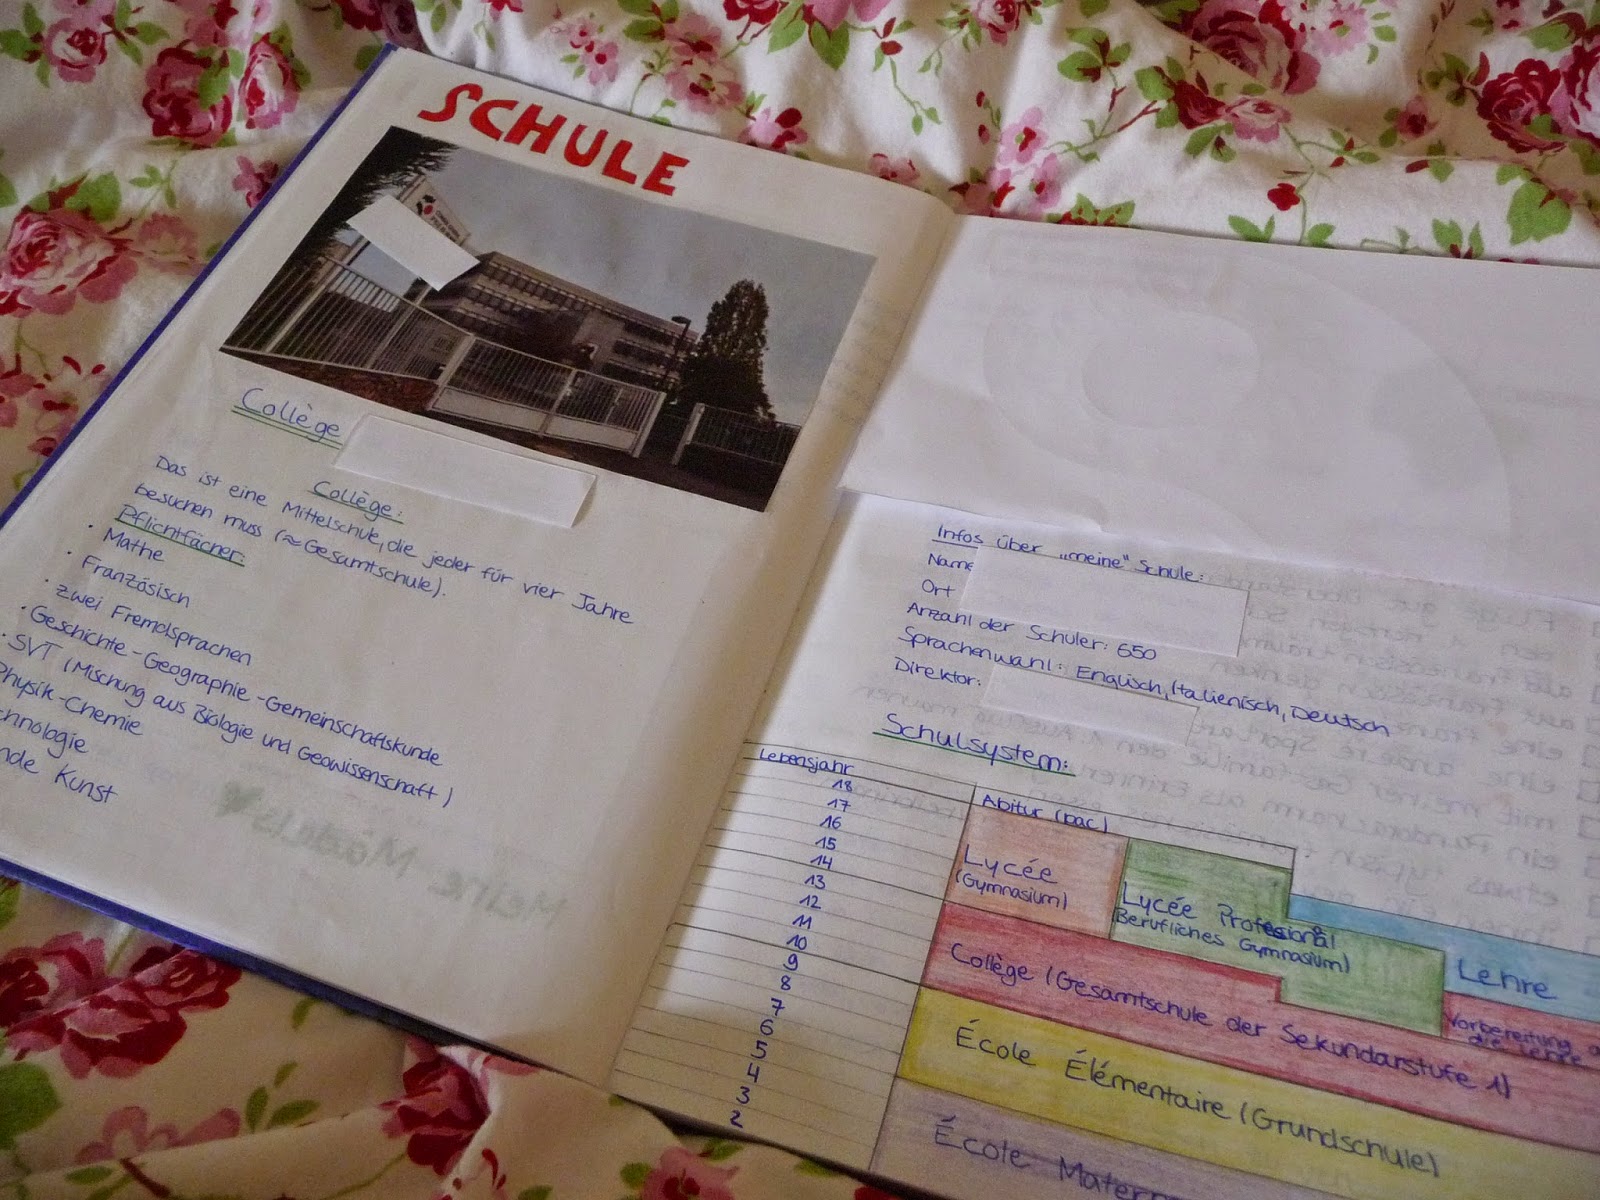 SCHULE
Collège
Collège:
Das ist eine Mittelschule, die jeder für vier Jahre
besuchen muss (≈Gesamtschule).
Pflichtfächer:
· Mathe
· Französisch
· zwei Fremdsprachen
· Geschichte - Geographie - Gemeinschaftskunde
· SVT (Mischung aus Biologie und Geowissenschaft)
Physik-Chemie
chnologie
nde Kunst
Meine Madals
Infos über „meine" Schule:
Name
Ort
Anzahl der Schüler: 650
Sprachenwahl: Englisch, Italienisch, Deutsch
Direktor:
Schulsystem:
Lebensjahr
18
17
16
15
14
13
12
11
10
9
8
7
6
5
4
3
2
Abitur (bac)
Lycée
(Gymnasium)
Lycée Profesional
Berufliches Gymnasium)
Lehre
Collège (Gesamtschule der Sekundarstufe 1)
Vorbereitung a
die Lehre
École Élémentaire (Grundschule)
École Matern